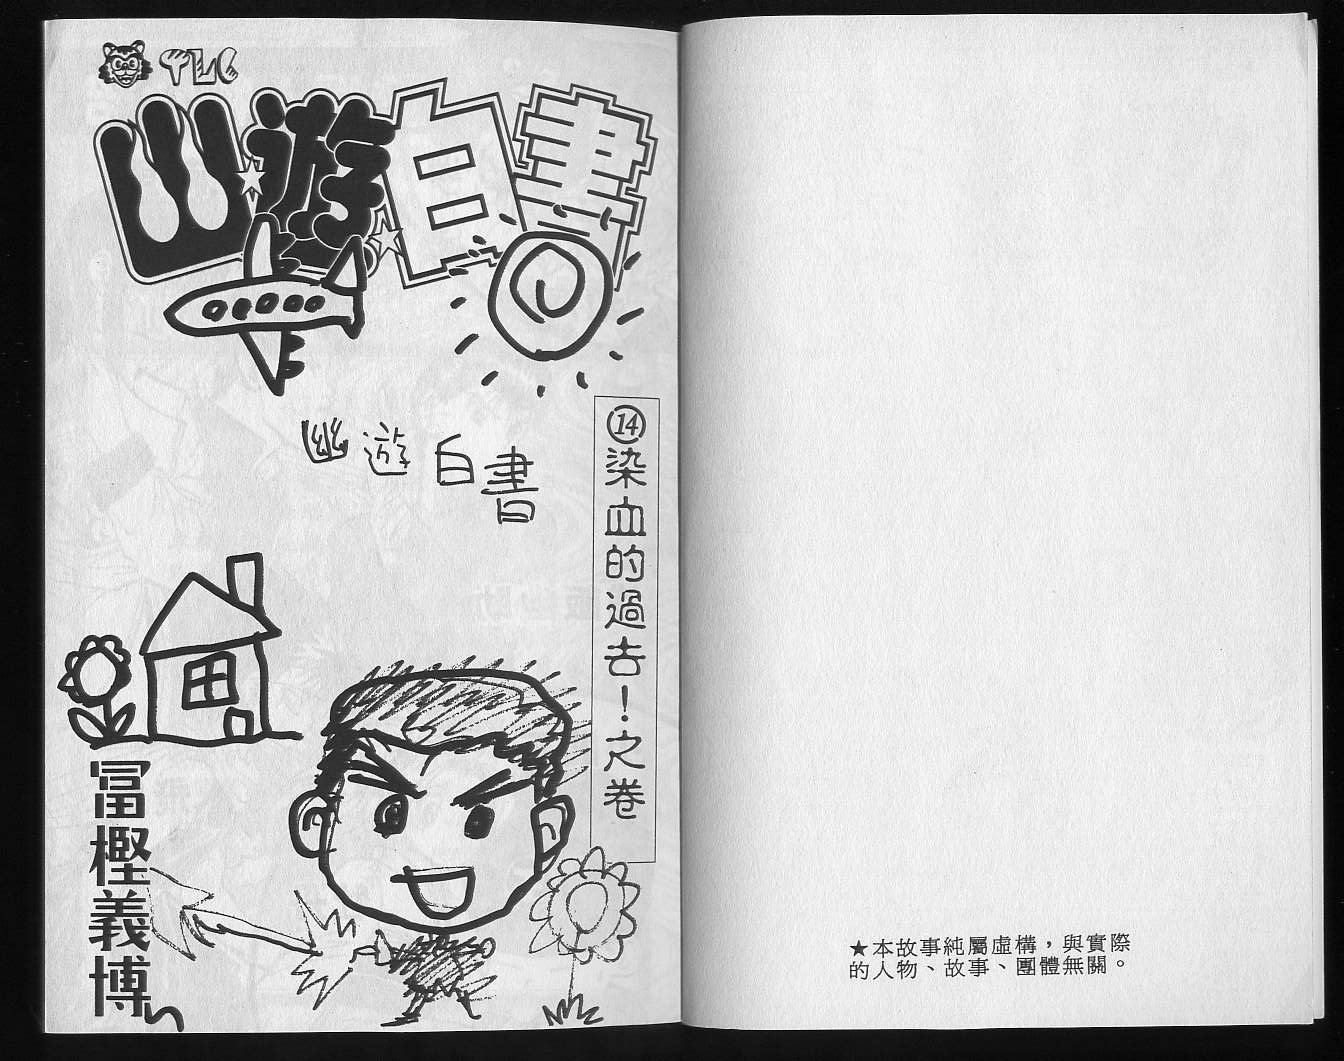 TLC
幽遊白書
幽遊白書
⑭染血的過去！之卷
冨樫義博
★本故事純屬虛構，與實際
的人物、故事、團體無關。